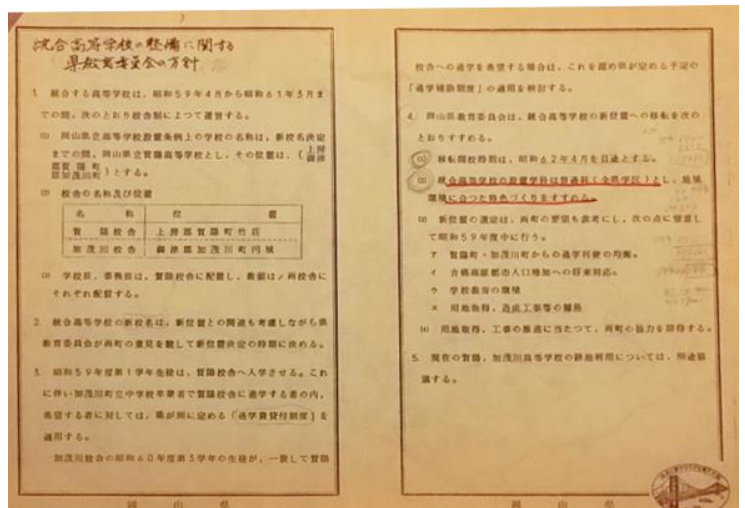 統合高等学校の整備に関する
県教育委員会の方針
1. 統合する高等学校は、昭和59年4月から昭和61年3月ま
での間、次のとおり校舎制によつて運営する。
(1) 岡山県立高等学校設置条例上の学校の名称は、新校名決定
までの間、岡山県立賀陽高等学校とし、その位置は、{上房郡賀陽町
御津郡加茂川町}とする。
(2) 校舎の名称及び位置
名 称 位 置
賀陽校舎 上房郡賀陽町竹荘
加茂川校舎 御津郡加茂川町円城
(3) 学校長、事務長は、賀陽校舎に配置し、教頭は、両校舎に
それぞれ配置する。
2. 統合高等学校の新校名は、新位置との関連も考慮しながら県
教育委員会が両町の意見を聴して新位置決定の時期に決める。
3. 昭和59年度第1学年生徒は、賀陽校舎へ入学させる。これ
に伴い加茂川町立中学校卒業者で賀陽校舎に通学する者の内、
希望する者に対しては、県が別に定める「通学費貸付制度」を
適用する。
加茂川校舎の昭和60年度第3学年の生徒が、一致して賀陽
校舎への通学を希望する場合は、これを認め県が定める予定の
「通学補助制度」の適用を検討する。
4. 岡山県教育委員会は、統合高等学校の新位置への移転を次の
とおりすすめる。
(1) 移転開校時期は、昭和62年4月を目途とする。
(2) 統合高等学校の設置学科は普通科(全県学区)とし、地域
環境に合つた特色づくりをすすめる。
(3) 新位置の選定は、両町の要望も参考にし、次の点に留意し
て昭和59年度中に行う。
ア 賀陽町・加茂川町からの通学利便の均衡。
イ 吉備高原都市人口増加への将来対応。
ウ 学校教育の環境
エ 用地取得、造成工事等の難易
(4) 用地取得、工事の推進に当たつて、両町の協力を期待する。
5. 現在の賀陽、加茂川高等学校の跡地利用については、別途協
議する。
岡 山 県
岡 山 県